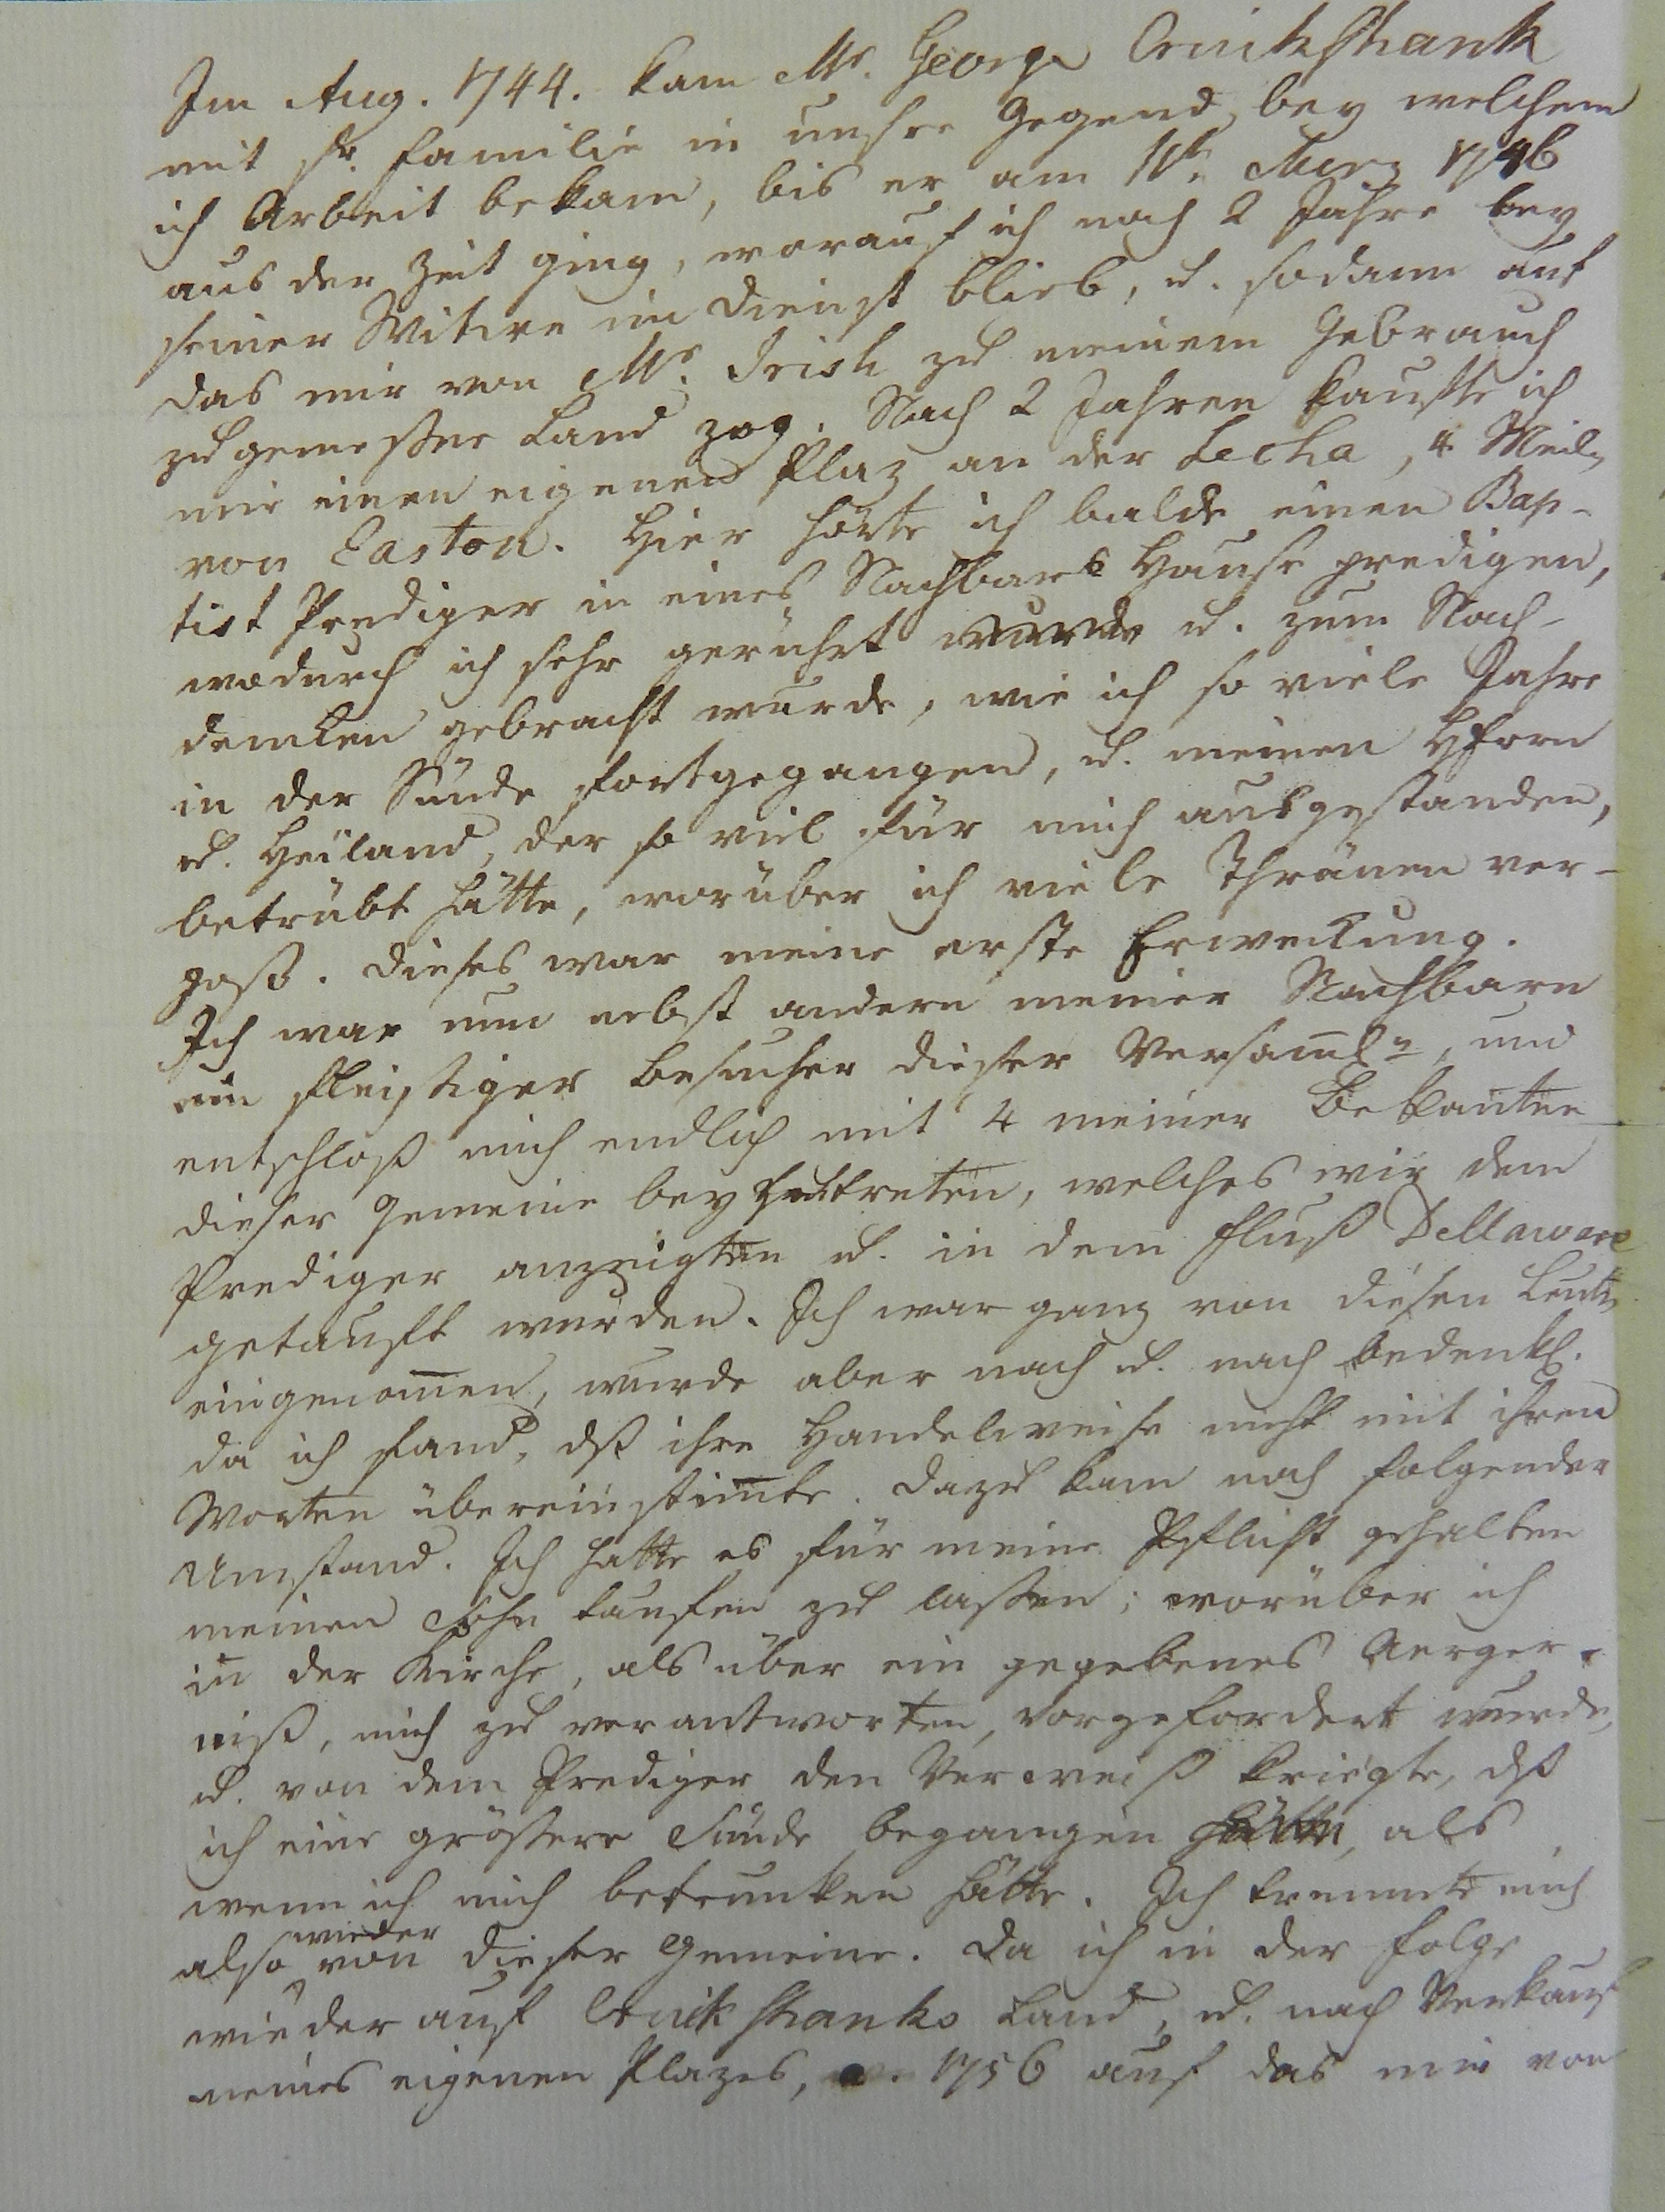 Im Aug. 1744. kam Mr. George Cruikshank
mit sr. Familie in unsre Gegend, bey welchem
ich Arbeit bekam, bis er am 11t. Merz 1746
aus der Zeit ging, worauf ich noch 2 Jahre bey
seiner Witwe im Dienst blieb, u. sodann auf
das mir von Mr. Irish zu meinem Gebrauch
zugemeßne Land zog. Nach 2 Jahren kaufte ich
mir einen eigenen Plaz an der Lecha, 4 Meiln
von Easton. Hier hörte ich balde einen Bap-
tist Prediger in eines Nachbars Hause predigen,
wodurch ich sehr gerührt wurde u. zum Nach-
denken gebracht wurde, wie ich so viele Jahre
in der Sünde fortgegangen, u. meinen HErrn
u. Heiland, der so viel für mich ausgestanden,
betrübt hätte, worüber ich viele Thränen ver-
goß. Dieses war meine erste Erweckung.
Ich war nun nebst andern meiner Nachbarn
ein fleißiger Besucher dieser Versamlgn, und
entschloß mich endlich mit 4 meiner Bekanten
dieser Gemeine bey treten, welches wir dem
Prediger anzeigten u. in dem Fluß Dellaware
getauft wurden. Ich war ganz von diesen Leuten
eingenomen, wurde aber nach u. nach bedenkl.
da ich fand, dß ihre Handelweise nicht mit ihren
Worten übereinstimte. Dazu kam noch folgender
Umstand. Ich hatte es für meine Pflicht gehalten
meinen Sohn taufen zu lassen; worüber ich
in der Kirche, als über ein gegebenes Aerger-
niß, mich zu verantworten, vorgefordert wurde,
u. von dem Prediger den Verweiß kriegte, dß
ich eine größere Sünde begangen hätte, als
wenn ich mich betrunken hätte. Ich trennte mich
also wieder von dieser Gemeine. Da ich in der Folge
wieder auf Cruikshanks Land, u. nach Verkauf
meines eigenen Plazes, 1756 auf das mir von